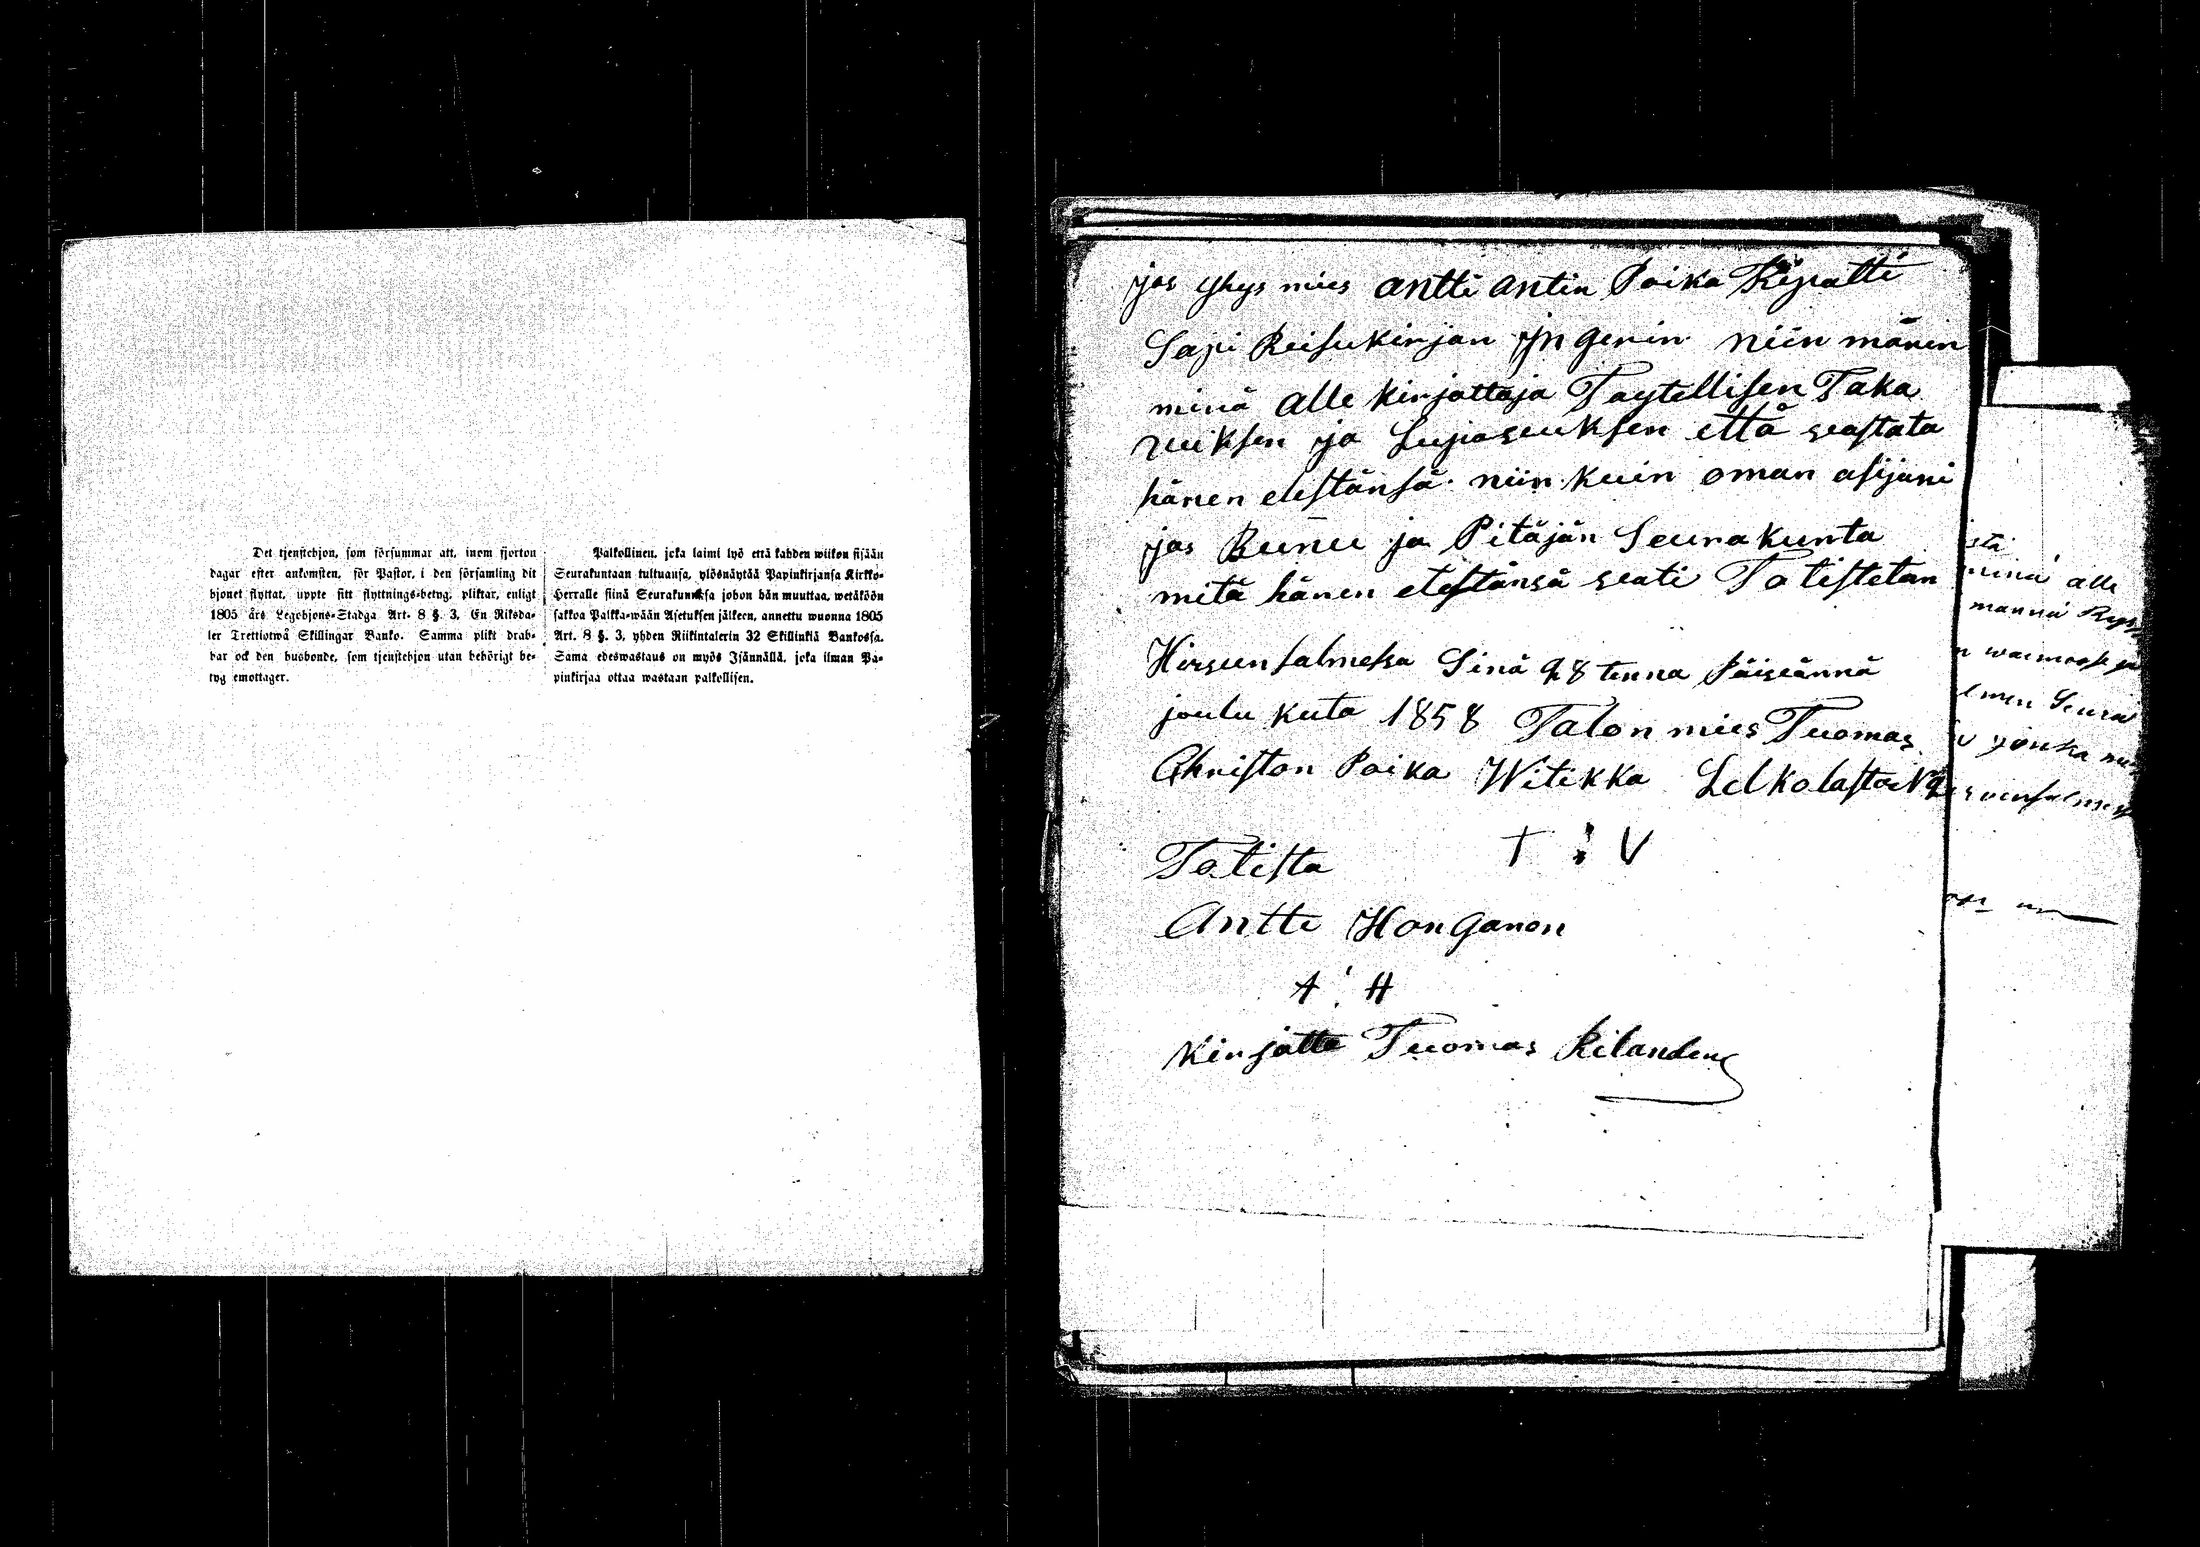 Det tjenstehjon, som försummar att, inom fjorton
dagar efter ankomsten, för Pastor, i den församling dit
hjonet flyttat, uppte sitt flyttnings-betyg, pliktar, enligt
1805 års Legohjons-Stadga Art. 8 §. 3, En Riksda-
ler Trettiotwå Skillingar Banko. Samma plikt drab-
bar ock den husbonde, som tjenstehjon utan behörigt be-
tyg emottager.
Palkollinen, joka laimi lyö että kahden wiikon sisään
Seurakuntaan tultuansa, ylösnäytää Papinkirjansa Kirkko-
Herralle siinä Seurakunnassa johon hän muuttaa, wetäköön
sakkoa Palkka-wään Asetuksen jälkeen, annettu wuonna 1805
Art. 8 §. 3, yhden Riikintalerin 32 Skillinkiä Bankossa.
Sama edeswastaus on myös Isännällä, joka ilman Pa-
pinkirjaa ottaa wastaan palkollisen.
jos yhys mies antti antin Poika Kypatti
Sapi Reisukirjan jngerin niin mänen
minä alle kirjottaja Taytellisen Taka
uuksen ja Lupaseuksen että seastata
hänen etestänsä niin kuin oman asijani
jos Kunu ja Pitäjän Seurakunta
mitä hänen etestänsä seati Totistetan
Hirsuensalmesa Sinä 28 tenna Päiseännä
joulu kuta 1858 Talon mies Tuomas
Christon Poika Witikka Lelkolasta No
T V
Totista
Antti Honganon
A H
Kirjotta Tuomas Rilander
stä
minä alle
manna
n
lmen Seura
jonka